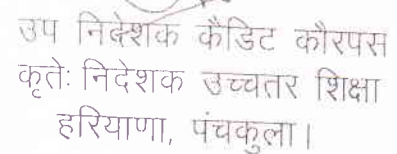 उप निदेशक कैडिट कौरपस
कृतेः निदेशक उच्चतर शिक्षा
हरियाणा, पंचकुला।